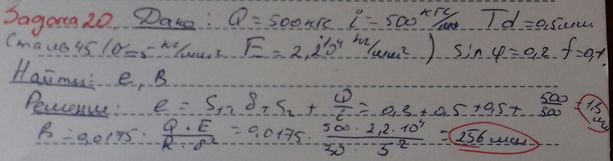 Задача 20. Дано: Q = 500 кгс i = 500 кгс/мм Td = 0,5 мм
Сталь 45 E = 2,2·10⁴ кг/мм² ) sin φ = 0,2 f = 0,1
Найти: e, B
Решение: e = S₁ + δ + S₂ + Q/i = 0,3 + 0,5 + 0,5 + 500/500 = 1,3 мм
B = 0,0175 · Q · E / R · σ² = 0,0175 · 500 · 2,2 · 10⁴ / 30 · 5² = 256 мм